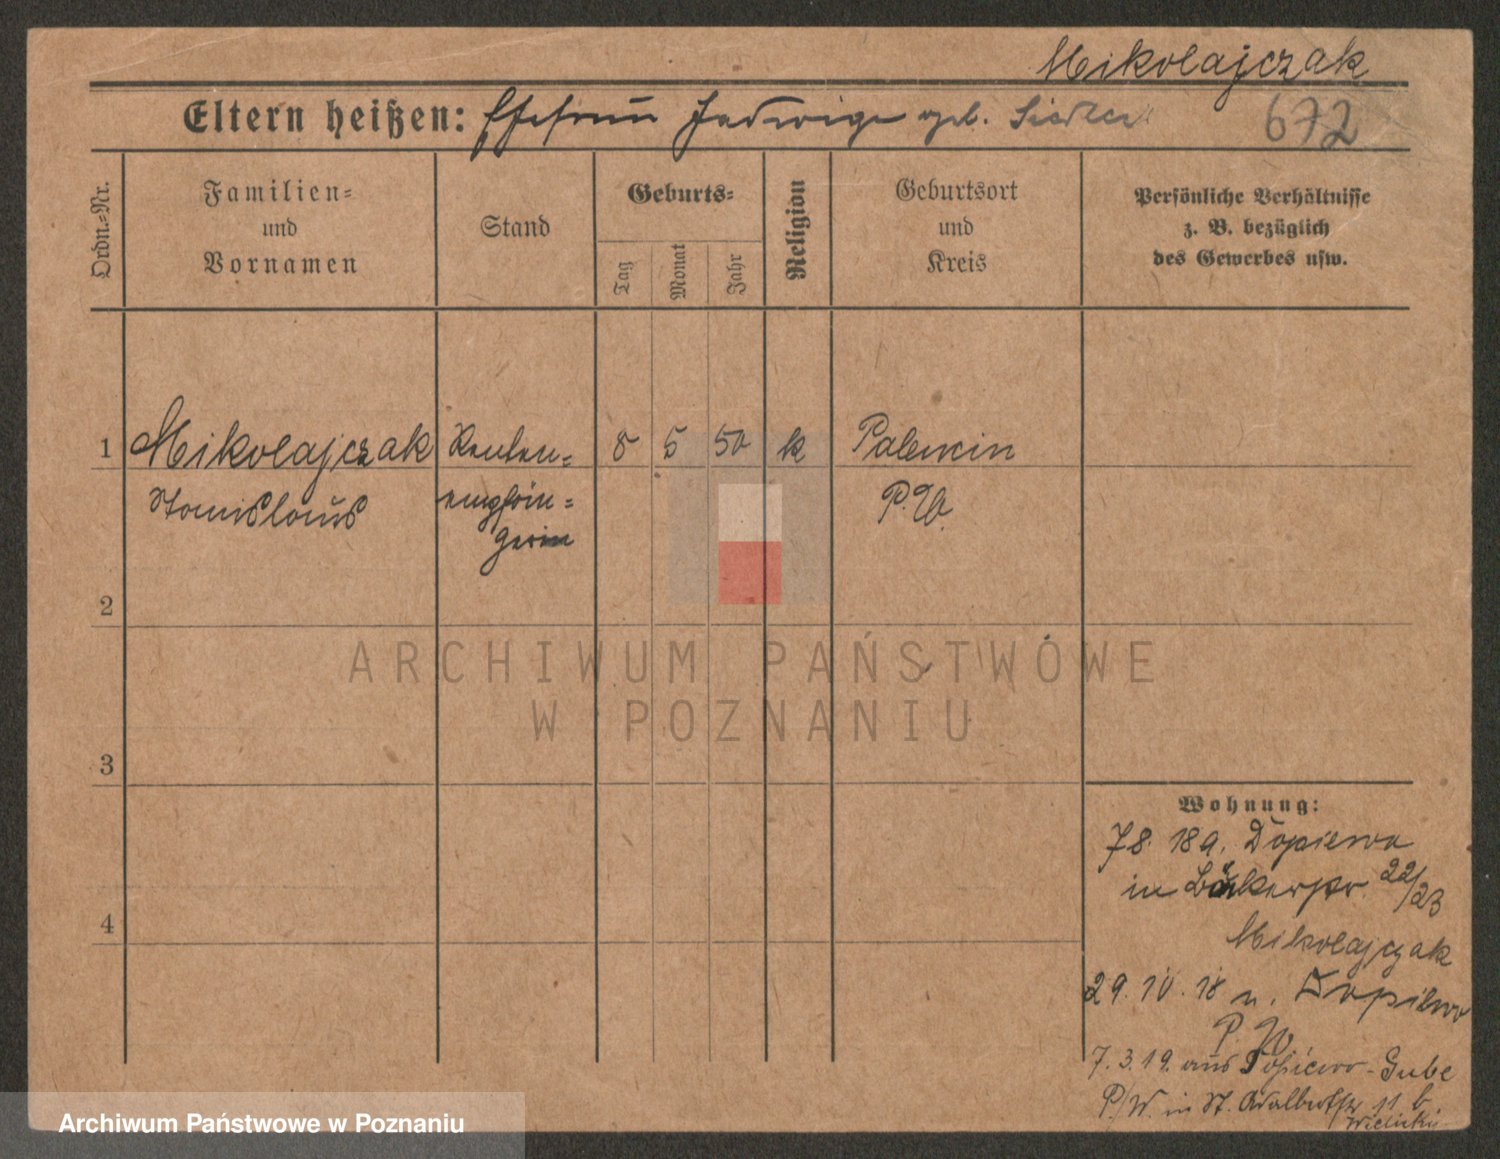 Mikolajczak
Eltern heißen: Ehefrau Jadwiga geb. Siedler
672
Ordn.-Nr.
Familien-
und
Vornamen
Stand
Geburts-
Tag
Monat
Jahr
Religion
Geburtsort
und
Kreis
Persönliche Verhältnisse
z. B. bezüglich
des Gewerbes usw.
1 Mikolajczak Renten- 8 5 50 k Palencin
Stanislaus empfän- P. W.
gerin
2
3
4
ARCHIWUM PAŃSTWOWE
W POZNANIU
Wohnung:
7.8.18 a. Dopiewo
in Bäckerstr. 22/23
Mikolajczak
29.10.18 n. Dopiewo
P. W.
7.3.19. aus Dopiewo-Gube
P/W. in St. Adalbertstr 11 b
Wielicki
Archiwum Państwowe w Poznaniu